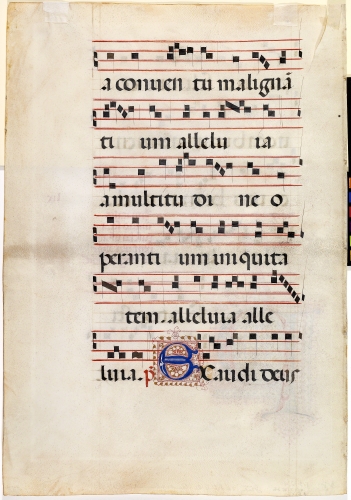 a conven tu malignā
ti um allelu ia
a multitu di ne o
peranti um iniquita
tem alleluia alle
luia. p̄ Exaudi deus